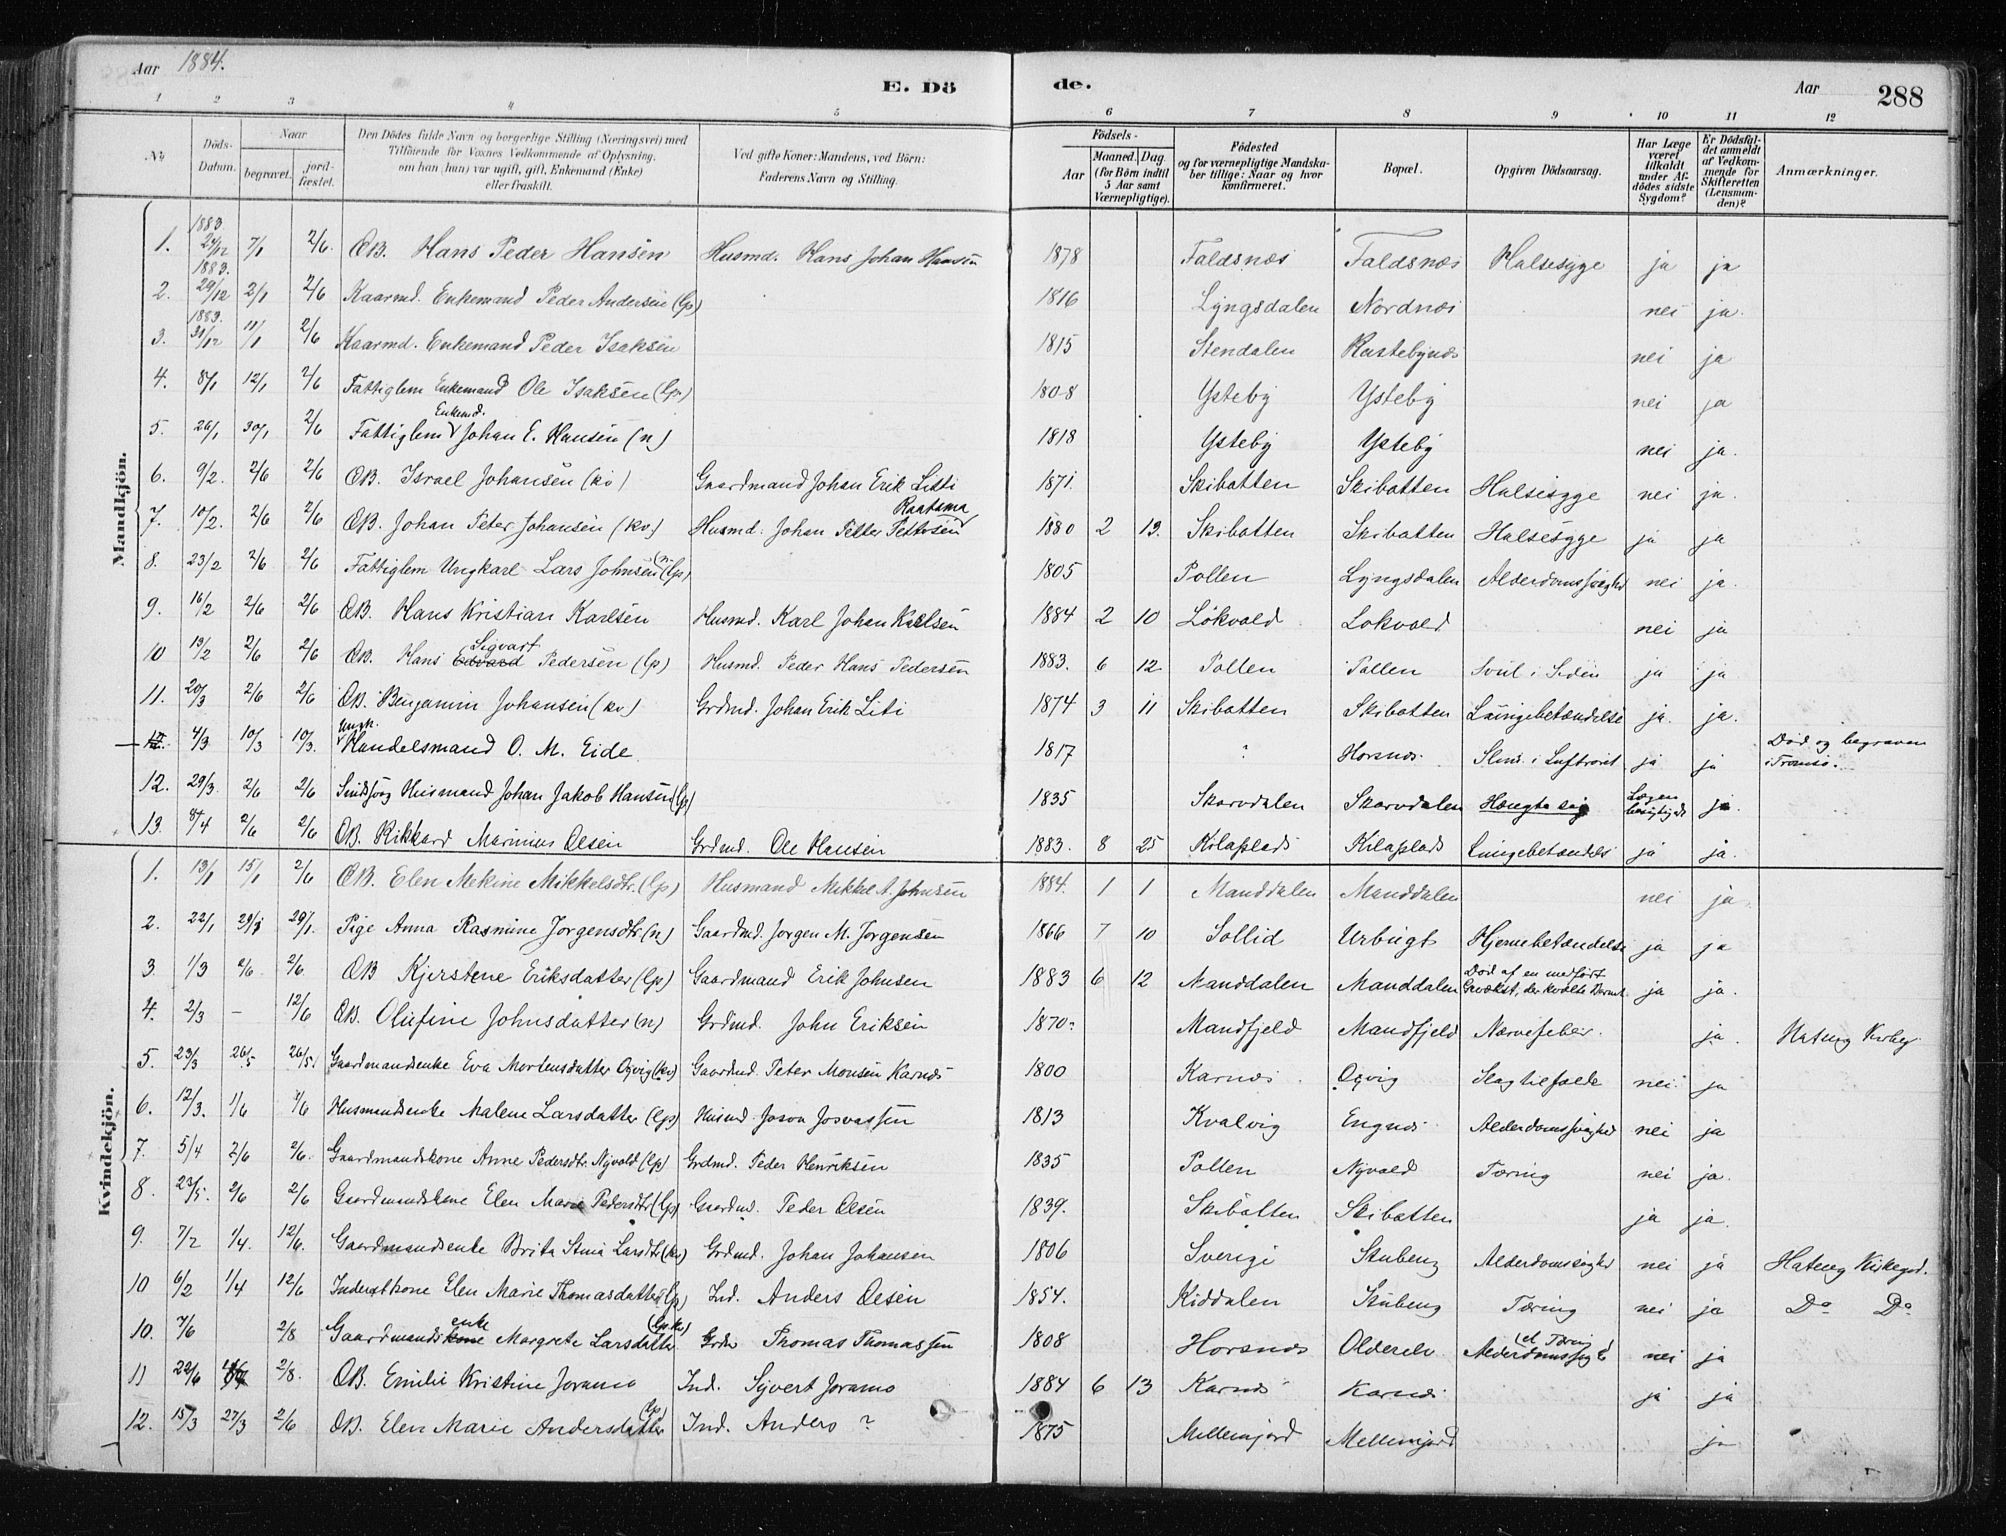 Aar 1884. E. Dö de. Aar 288
1 2 3 4 5 6 7 8 9 10 11 12
No. Döds-Datum. Naar begravet. jordfæstet. Den Dödes fulde Navn og borgerlige Stilling (Næringsvei) med Tilföiende for Voxnes Vedkommende af Oplysning, om han (hun) var ugift, gift, Enkemand (Enke) eller fraskilt. Ved gifte Koner: Mandens, ved Börn: Faderens Navn og Stilling. Födsels- Aar Maaned. Dag. (for Börn indtil 5 Aar samt Værnepligtige). Födested og for værnepligtige Mandskaber tillige: Naar og hvor konfirmeret. Bopæl. Opgiven Dödsaarsag. Har Læge været tilkaldt under Afdödes sidste Sygdom? Er Dödsfaldet anmeldt af Vedkommende for Skifteretten (Lensmanden)? Anmærkninger.
Mandkjön.
1. 1883 24/12 7/1 2/6. ØB. Hans Peder Hansen Husmd. Hans Johan Hansen 1878 Faldsnæs Faldsnæs Halsesyge ja ja
2. 1883. 29/12 2/1 2/6 Kaarmd. Enkemand Peder Andersen (lp) 1816 Lyngsdalen Nordnæs nei ja.
3. 1883. 31/12 11/1 2/6 Kaarmd. Enkemand Peder Isaksen 1815 Stendalen Rastebynæs nei ja
4. 8/1 12/1 2/6 Fattiglem Enkemand Ole Isaksen (lp) 1808 Ysteby Ysteby nei ja
5. 26/1 30/1 2/6 Fattiglem Enkemd. Johan E. Hansen (n) 1818 Ysteby Ysteby nei ja.
6. 9/2. 2/6 2/6 ØB. Israel Johansen (kv) Gaardmand Johan Erik Litti 1871. Skibotten Skibotten Halsesyge nei ja.
7. 10/2. 2/6 2/6 ØB. Johan Peter Johansen (kv) Husmd. Johan Petter Pettersen Raatama 1880 2 19. Skibotten Skibotten Halsesyge ja ja
8. 23/2 2/6 2/6 Fattiglem Ungkarl Lars Johnsen (lp) 1805 Pollen Lyngsdalen Alderdomssvaghed nei ja.
9. 16/2 2/6 2/6 ØB. Hans Kristian Karlsen Husmd. Karl Johan Karlsen 1884 2 10 Løkvold Lokvold nei ja
10 19/2 2/6 2/6 ØB. Hans Edvard Sigvart Pedersen (lp) Husmd. Peder Hans Pedersen 1883. 6 12 Pollen Pollen i Siden ja ja
11. 20/3 2/6 2/6 ØB. Benjamin Johansen (kv) Grdmd. Johan Erik Liti 1874 3 11 Skibotten Skibotten Lungebetændelse ja. ja.
12. 4/3 10/3 10/3. Ungk. Handelsmand O. M. Eide 1817 " Horsnæs. Slim i Luftroret ja ja Død og begraven i Tromsø.
12. 29/3 2/6 2/6 Husmand Johan Jakob Hansen (lp) 1835 Skarvdalen Skarvdalen Hængte sig Lægen ja.
13. 8/4 2/6 2/6 ØB. Rikkard Marinius Olsen Grdmd. Ole Hansen 1883. 8 25 Kilaplads Kilaplads Lungebetændels ja ja.
Kvindekjön.
1. 13/1 15/1 2/6 ØB. Elen Mekine Mikkelsdtr. (lp) Husmand Mikkel A. Johnsen 1884. 1 1 Manddalen Manddalen nei ja.
2. 22/1 29/1 29/1. Pige Anna Rasmine Jørgensdtr (n) Gaardmd. Jørgen M. Jørgensen 1866 7 10 Sollid Urbugt Hjernebetændelse ja ja
3 1/3 2/6 2/6. ØB Kjerstene Eriksdatter (lp) Gaardmand Erik Johnsen 1883 6 12 Manddalen Manddalen Død af en medført Gevækst, der kvalte Barnet. ja ja.
4. 2/3 – 12/6 ØB. Olufine Johnsdatter (n) Grdmd. John Eriksen 1870. Mandfjeld Mandfjeld Nervefeber. ja. Hateng Kirkeg.
5. 23/3 26/5 26/5. Gaardmandsenke Eva Mortensdatter Oxvig (kv) Gaardmd. Peter Monsen Karnæs 1800 Karnæs Oxvig Slagtilfælde nei ja
6. 12/3. 1/6 2/6 Husmandsenke Malene Larsdatter (lp) Husmd. Joson Josvassen 1813 Kvalvig Engnæs Alderdomssvaghed nei ja
7. 5/4 2/6 2/6. Gaardmandskone Anne Pedersdtr. Nyvold (lp) Grdmd. Peder Henriksen 1835 Pollen Nyvold Tæring nei ja.
8. 23/5. 2/6 2/6 Gaardmandskone Elen Marie Pedersdtr (lp) Gaardmd. Peder Olsen 1839. Skibotten Skibotten ja ja.
9. 7/2 1/4. 12/6. Gaardmandsenke Brita Stina Larsdtr (kv) Grdmd. Johan Johansen 1806 Sverige Stubeng Alderdomssvaghed nei ja Hateng Kirkegrd.
10 6/2 1/4 12/6 Inderstkone Elen Marie Thomasdatter (lp) Ind. Anders Olsen 1854. Kiddalen Stubeng Tæring nei ja Do Do
10. 7/6 2/8 Gaardmandskone enke Margrete Larsdatter (lp kv) Grdm Thomas Thomassen 1808 Horsnæs Olderelv Alderdomssvaghed (el Tæring nei ja
11 22/6 2/8. ØB. Emilie Kristine Joramo Ind. Syvert Joramo 1884 6 13 Karnæs Karnæs. ja ja
12. 15/3 27/3 2/6 ØB. Elen Marie Andersdatter (lp) Ind. Anders ? 1875 Mellemjord Mellemjord ja